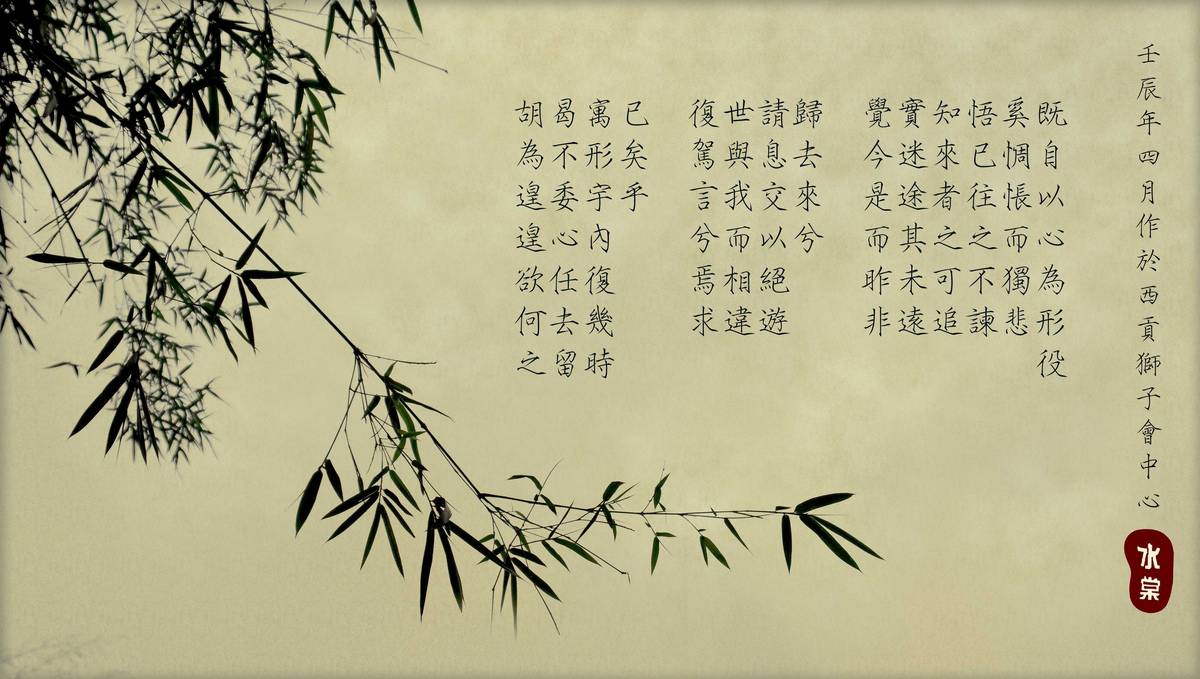 壬辰年四月作於西貢獅子會中心
水棠
既自以心為形役
奚惆悵而獨悲
悟已往之不諫
知來者之可追
實迷途其未遠
覺今是而昨非
歸去來兮
請息交以絕遊
世與我而相違
復駕言兮焉求
已矣乎
寓形宇內復幾時
曷不委心任去留
胡為遑遑欲何之